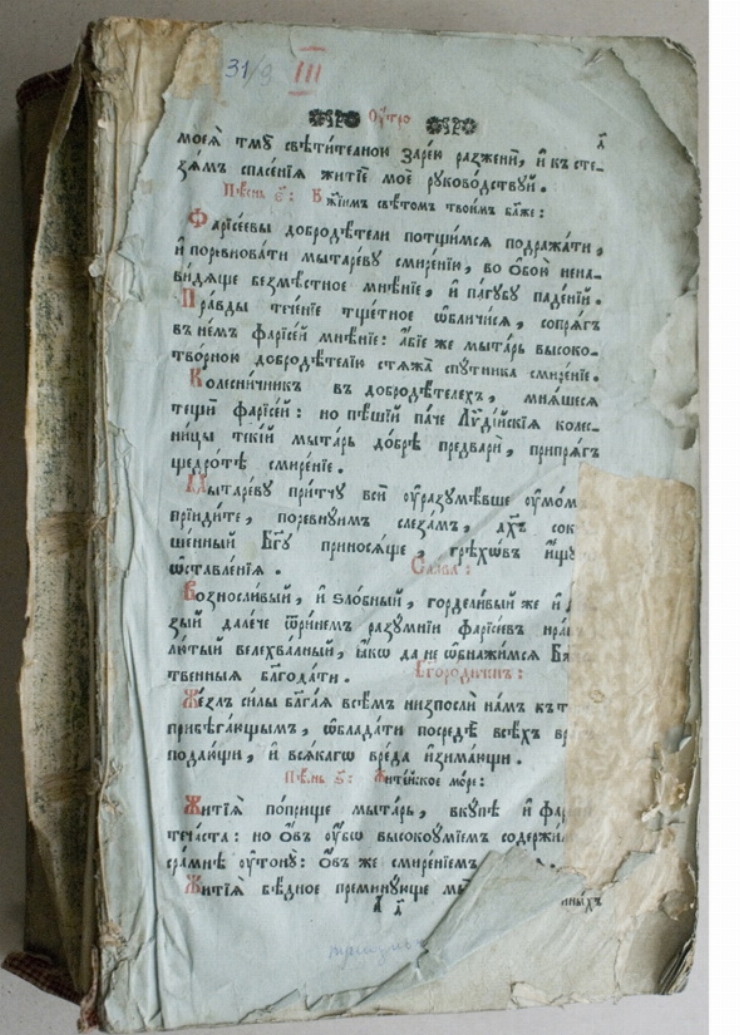 31/9 III
Оу҆́тро
а҃
моеѧ̀ тмꙋ̀ свѣти́тельною заре́ю разженѝ, и҆ къ сте-
зѧ́мъ спасе́нїѧ житїѐ моѐ рꙋково́дствꙋй.
Пѣ́снь є҃: Бж҃їимъ свѣ́томъ твои́мъ бл҃же:
Фарїсе́евы добродѣ́тели потщи́мсѧ подража́ти,
и҆ поревнова́ти мытаре́вꙋ смире́нїю, во ѻ҆бою̀ нена-
ви́дѧще безмѣ́стное мнѣ́нїе, и҆ па́гꙋбꙋ паде́нїй.
Пра́вды тече́нїе тще́тное ѡ҆бличи́сѧ, сопрѧ́гъ
въ не́мъ фарїсе́й мнѣ́нїе: а҆́бїе же мыта́рь высоко-
тво́рною добродѣ́телїю стѧжа̀ спꙋ́тника смире́нїе.
Колесни́чникъ въ добродѣ́телехъ, мнѧ́шесѧ
тещѝ фарїсе́й: но пѣ́шїй па́че Лѷді́йскїѧ колес-
ни́цы теки́й мыта́рь до́брѣ предварѝ, припрѧ́гъ
щедро́тѣ смире́нїе.
Мытаре́вꙋ при́тчꙋ всѝ оу҆разꙋмѣ́вше оу҆мо́м
прїиди́те, поревнꙋ́имъ слеза́мъ, дх҃ъ сок
ше́нный Бг҃ꙋ приносѧ́ще, грѣхѡ́въ и҆́щꙋ
ѡ҆ставле́нїѧ. Сла́ва:
Возносли́вый, и҆ ѕло́бный, горделивый же и҆
зый дале́че ѿри́немъ разꙋ́мнїи фарїсе́въ нра́
лю́тый велехва́лный, ꙗ҆́кѡ да не ѡ҆бнажи́мсѧ Бж
твенныѧ благода́ти. Бг҃оро́диченъ:
Же́злъ си́лы бл҃га́ѧ всѣ́мъ низпослѝ на́мъ къ т
прибѣга́ющымъ, ѡ҆блада́ти посредѣ̀ всѣ́хъ вр
подаю́щи, и҆ всѧ́кагѡ вре́да и҆зима́ющи.
Пѣ́снь ѕ҃: Жите́йское мо́ре:
Житїѧ̀ по́прище мыта́рь, вкꙋ́пѣ и҆ фар
теча́ста: но ѻ҆́въ оу҆́бѡ высокоꙋ́мїемъ содержи́
сра́мнѣ оу҆тонꙋ̀: ѻ҆́въ же смире́нїемъ
Житїѧ̀ бѣ́дное преминꙋ́юще мы
а҃ нныхъ